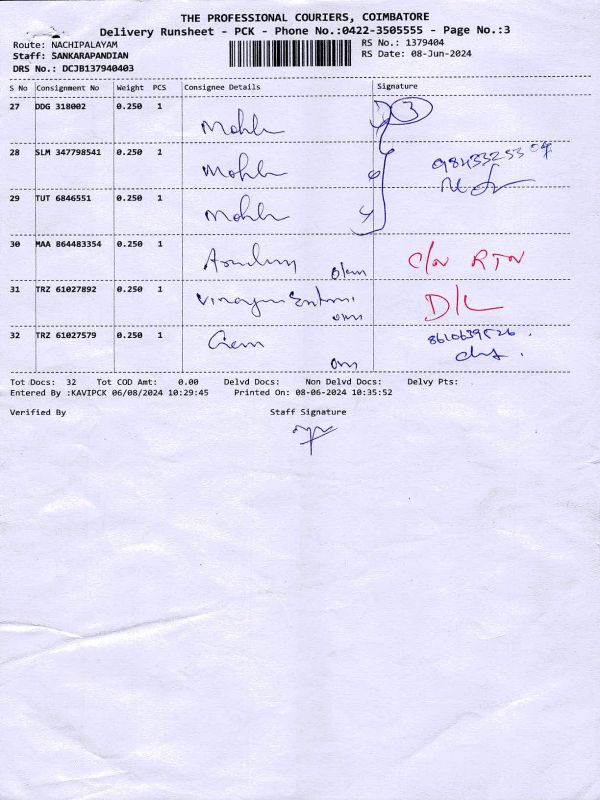 THE PROFESSIONAL COURIERS, COIMBATORE
Delivery Runsheet - PCK - Phone No.:0422-3505555 - Page No.:3
Route: NACHIPALAYAM
Staff: SANKARAPANDIAN
DRS No.: DCJB137940403
RS No.: 1379404
RS Date: 08-Jun-2024
S No Consignment No Weight PCS Consignee Details Signature
27 DDG 318002 0.250 1 3
28 SLM 347798541 0.250 1
29 TUT 6846551 0.250 1
30 MAA 864483354 0.250 1 C/N RTN
31 TRZ 61027892 0.250 1 D/L
32 TRZ 61027579 0.250 1 8610639526
Tot Docs: 32 Tot COD Amt: 0.00 Delvd Docs: Non Delvd Docs: Delvy Pts:
Entered By :KAVIPCK 06/08/2024 10:29:45 Printed On: 08-06-2024 10:35:52
Verified By Staff Signature